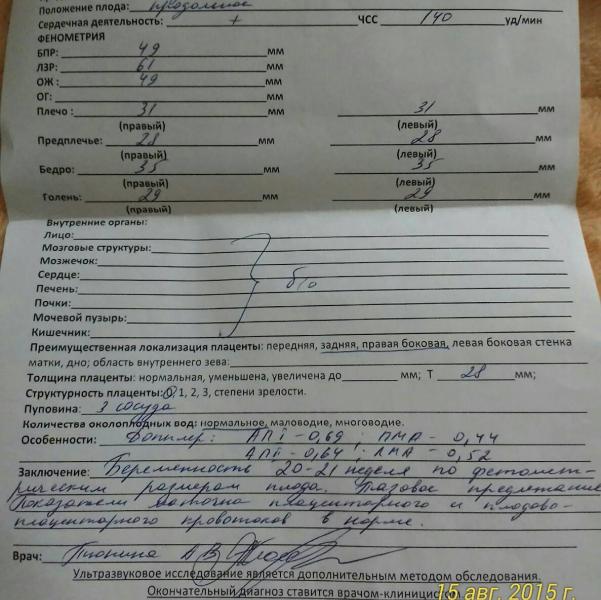 Положение плода: продольное
Сердечная деятельность: + ЧСС 140 уд/мин
ФЕНОМЕТРИЯ
БПР: 49 мм
ЛЗР: 61 мм
ОЖ : 49 мм
ОГ: мм
Плечо : 31 31 мм
(правый) (левый)
Предплечье: 28 мм 28 мм
(правый) (левый)
Бедро: 35 мм 35 мм
(правый) (левый)
Голень: 29 мм 29 мм
(правый) (левый)
Внутренние органы:
Лицо:
Мозговые структуры:
Мозжечок:
Сердце: б/о
Печень:
Почки:
Мочевой пузырь:
Кишечник:
Преимущественная локализация плаценты: передняя, задняя, правая боковая, левая боковая стенка
матки, дно; область внутреннего зева:
Толщина плаценты: нормальная, уменьшена, увеличена до мм; Т 28 мм;
Структурность плаценты: 0, 1, 2, 3, степени зрелости.
Пуповина: 3 сосуда
Количества околоплодных вод: нормальное, маловодие, многоводие.
Особенности: Допплер: АПI - 0,69 ; ПМА - 0,44
АПII - 0,64 ; ЛМА - 0,52
Заключение: Беременность 20-21 неделя по фетомет-
рическим размерам плода. Тазовое предлежание
Показатели маточно плацентарного и плодово-
плацентарного кровотоков в норме.
Врач: А В
Ультразвуковое исследование является дополнительным методом обследования.
Окончательный диагноз ставится врачом-клиницистом.
15 авг. 2015 г.